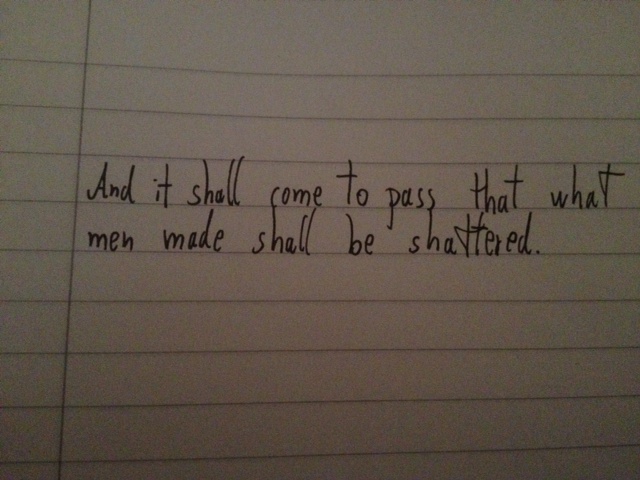 And it shall come to pass that what
men made shall be shattered.